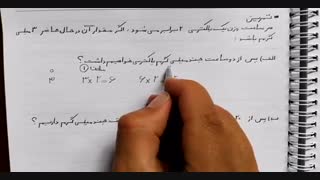 تمرین
هر ساعت وزن یک باکتری ۲ برابر می شود ، اگر مقدار آن در حال حاضر ۳ میلی
گرم باشد :
الف) پس از دو ساعت چند میلی گرم باکتری خواهیم داشت ؟
ساعت ①
۳ ۳×۲=۶ ۶×۲
ب) پس از چند میلی گرم داریم ؟